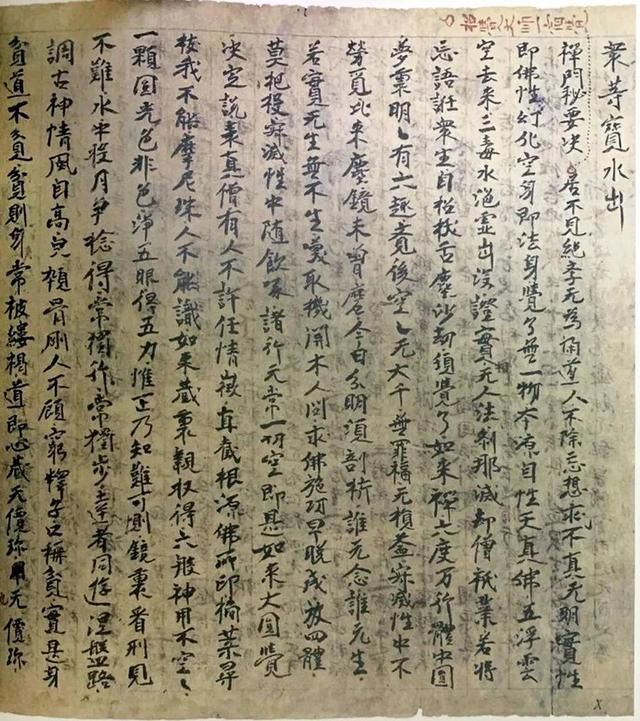 等寶水出
禪門秘要決 君不見絕學无為閑道人不除忘想求不真无明實性
即佛性幻化空身即法身覺了無一物本源自性天真佛五浮雲
空去來三毒水泡虛出沒證實相无人法剎那滅却僧祇業若將
忘語誑衆生自招拔舌塵沙劫頓覺了如來禪六度万行體中圓
夢裏明〻有六趣覺後空〻无大千無罪福无損益寂滅性中不
勞覓比來塵鏡未曾磨今日分明須剖析誰无念誰无生
若實无生無不生喚取機關木人問求佛施功早晚成放四體
莫把捉寂滅性中隨飲啄諸行无常一切空即是如來大圓覺
決定說表真僧有人不許任情徵直截根源佛所印摘葉尋
枝我不能摩尼珠人不能識如來藏裏親收得六般神用不空〻
一顆圓光色非色淨五眼得五力惟正乃知難可惻鏡裏看刑見
不難水中捉月爭拈得常獨行常獨步達者同遊涅盤路
調古神情風自高皃顇骨剛人不顧窮釋子口稱貧實是身
貧道不貧貧則身常被縷褐道即心藏无價珎用无價珎